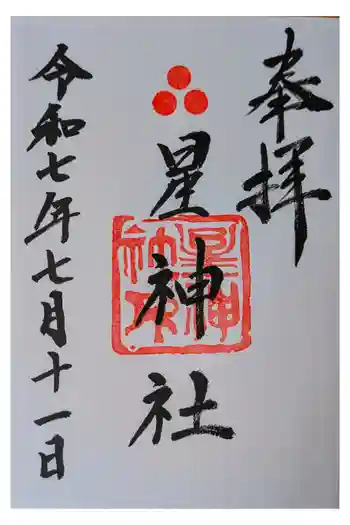 奉拝
星神社
令和七年七月十一日